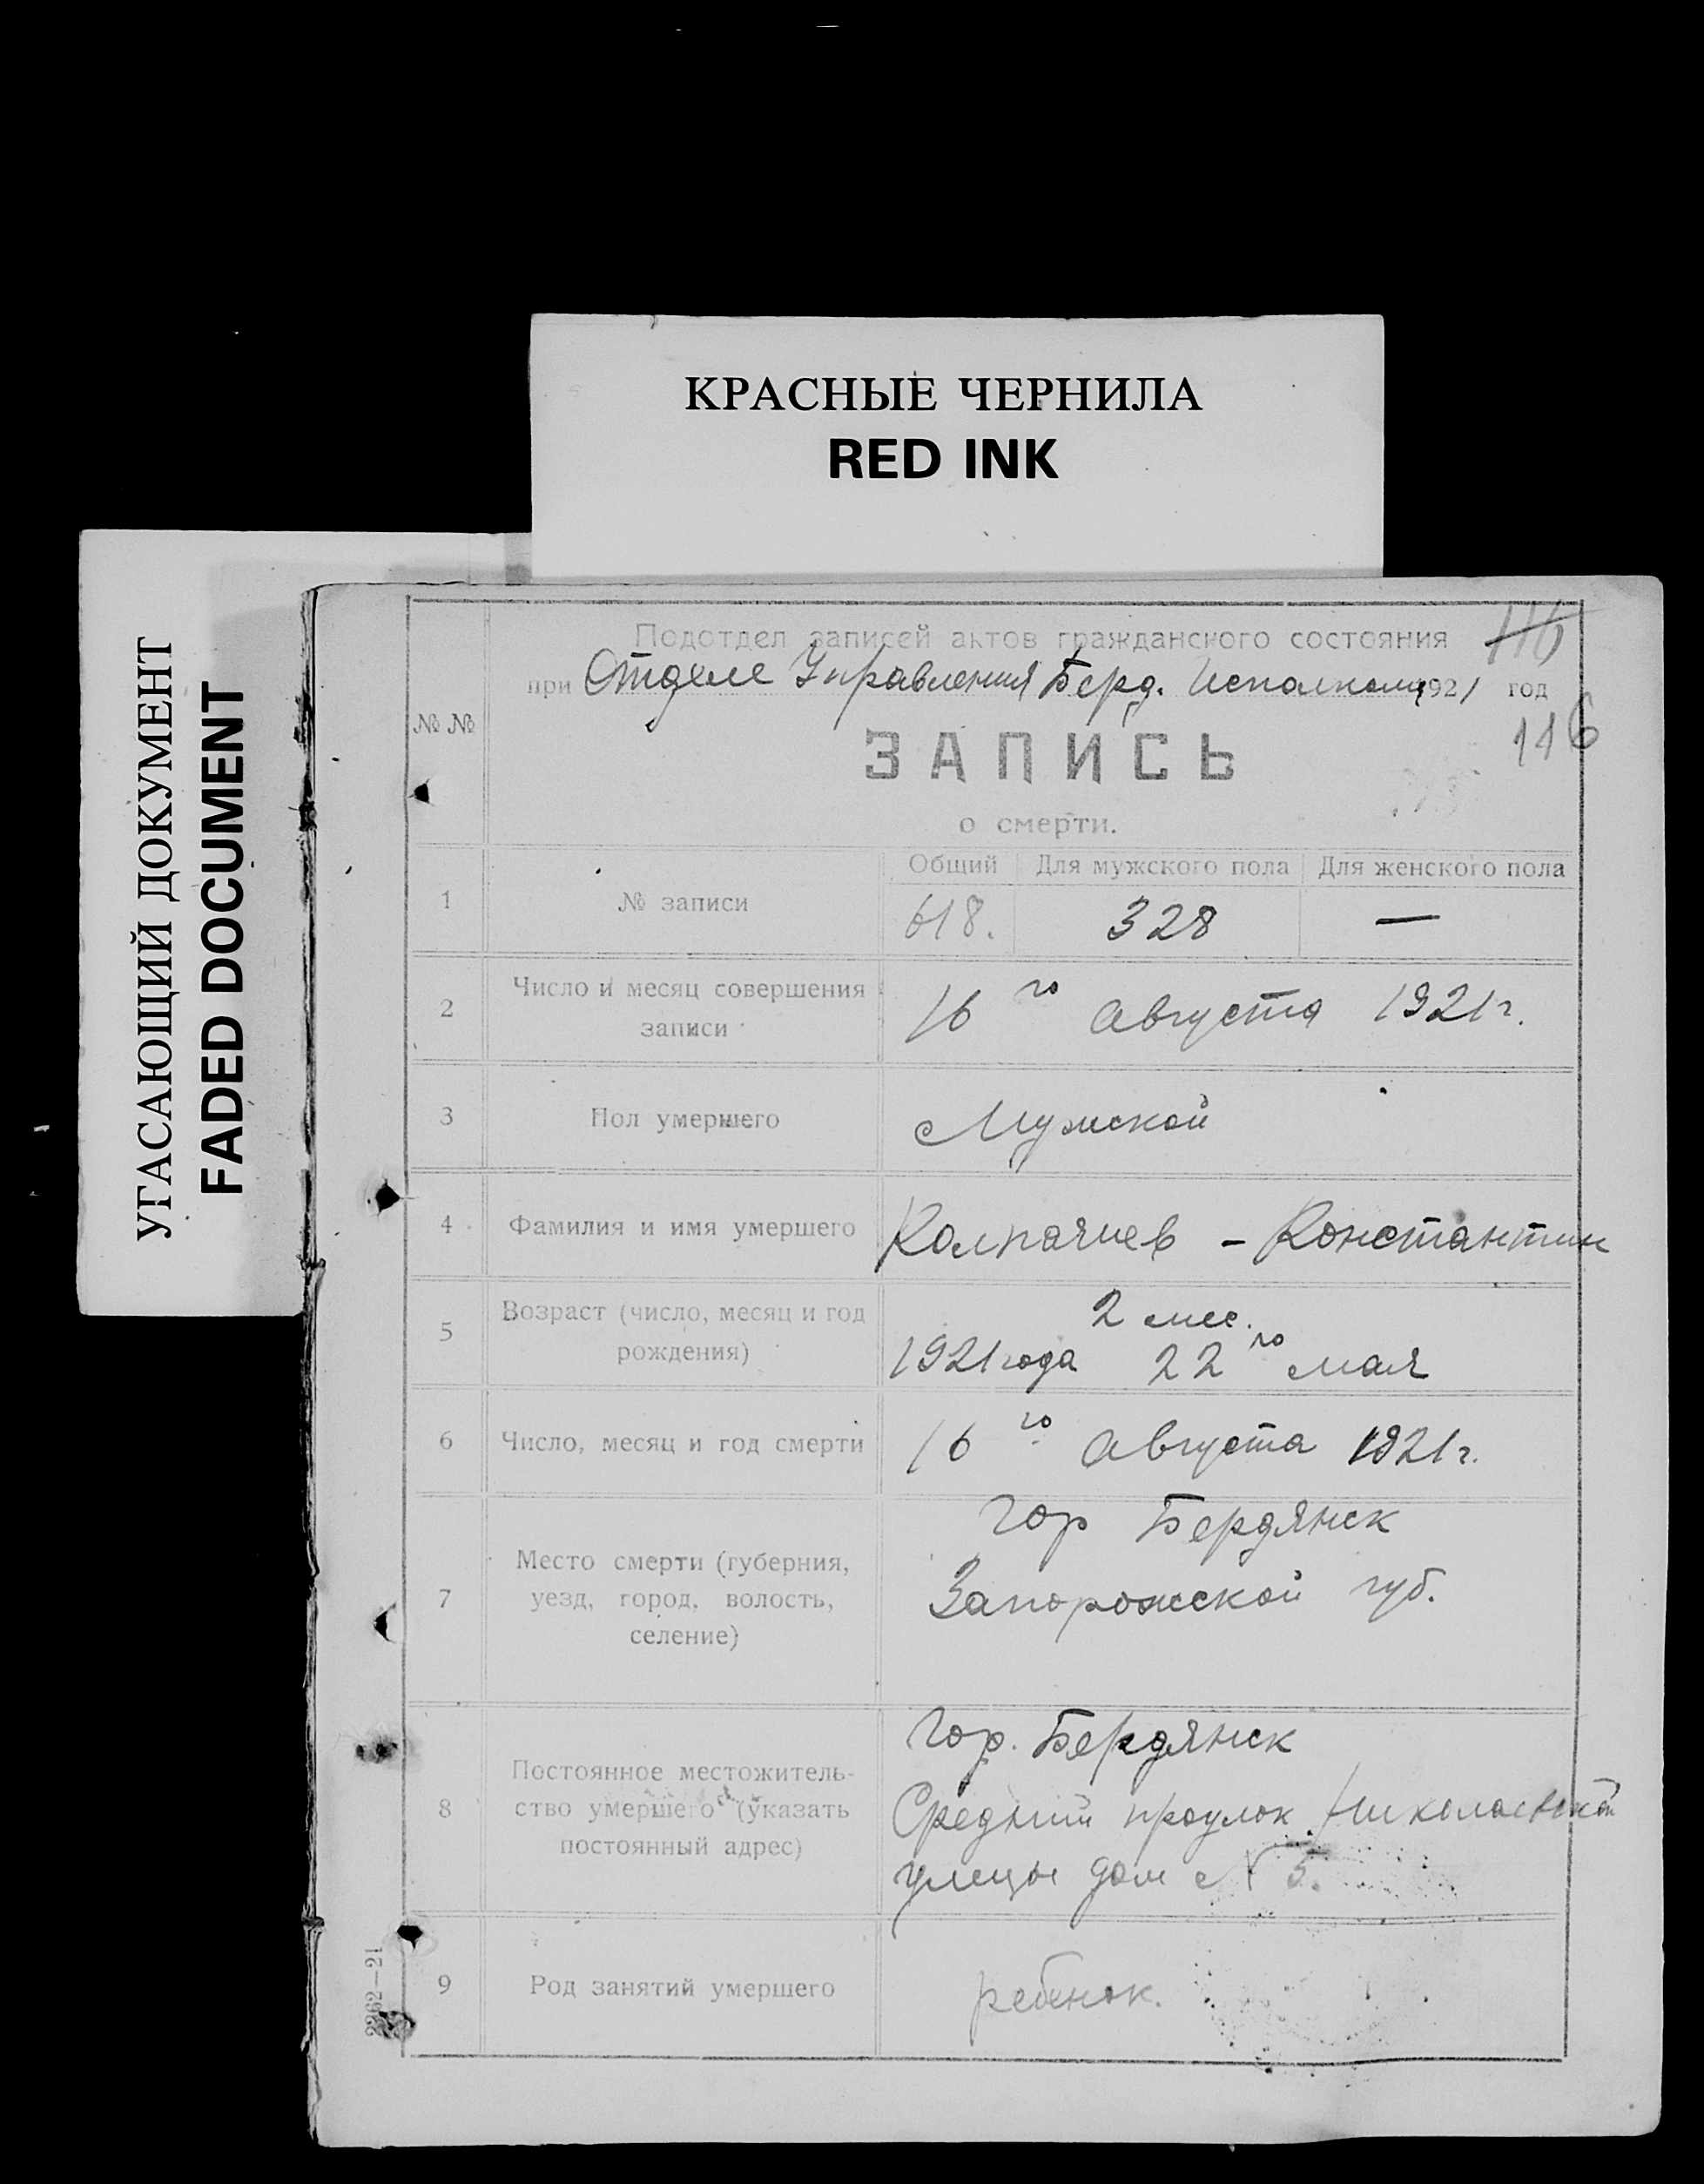 КРАСНЫЕ ЧЕРНИЛА
RED INK
УГАСАЮЩИЙ ДОКУМЕНТ
FADED DOCUMENT
116
Подотдел записей актов гражданского состояния
при Отделе Управления Берд. Исполкома 1921 год
116
№№
ЗАПИСЬ
о смерти.
Общий Для мужского пола Для женского пола
1 № записи 618. 328 —
2 Число и месяц совершения
записи
16 го Августа 1921 г.
3 Пол умершего Мужской
4 Фамилия и имя умершего Колпакчиев - Константин
5 Возраст (число, месяц и год
рождения)
2 мес.
1921 года 22 го мая
6 Число, месяц и год смерти 16 го Августа 1921 г.
7 Место смерти (губерния,
уезд, город, волость,
селение)
Гор Бердянск
Запорожской губ.
8 Постоянное местожитель-
ство умершего (указать
постоянный адрес)
Гор. Бердянск
Средний проулок Николаевской
улицы дом № 5.
9 Род занятий умершего ребенок.
2262—21